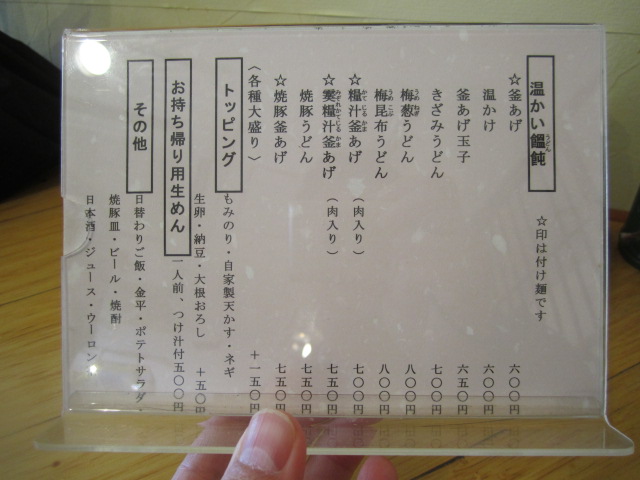 温かい饂飩
うどん
☆印は付け麺です
☆釜あげ 六〇〇円
温かけ 六〇〇円
釜あげ玉子 六五〇円
きざみうどん 七〇〇円
梅葱うどん 八〇〇円
梅昆布うどん 八〇〇円
☆糧汁釜あげ（肉入り） 七〇〇円
☆霙糧汁釜あげ（肉入り） 七五〇円
焼豚うどん 七五〇円
☆焼豚釜あげ 七五〇円
〈各種大盛り〉 ＋一五〇円
トッピング
もみのり・自家製天かす・ネギ
生卵・納豆・大根おろし ＋五〇円
お持ち帰り用生めん
一人前、つけ汁付五〇〇円
その他
日替わりご飯・金平・ポテトサラダ・
焼豚皿・ビール・焼酎
日本酒・ジュース・ウーロン